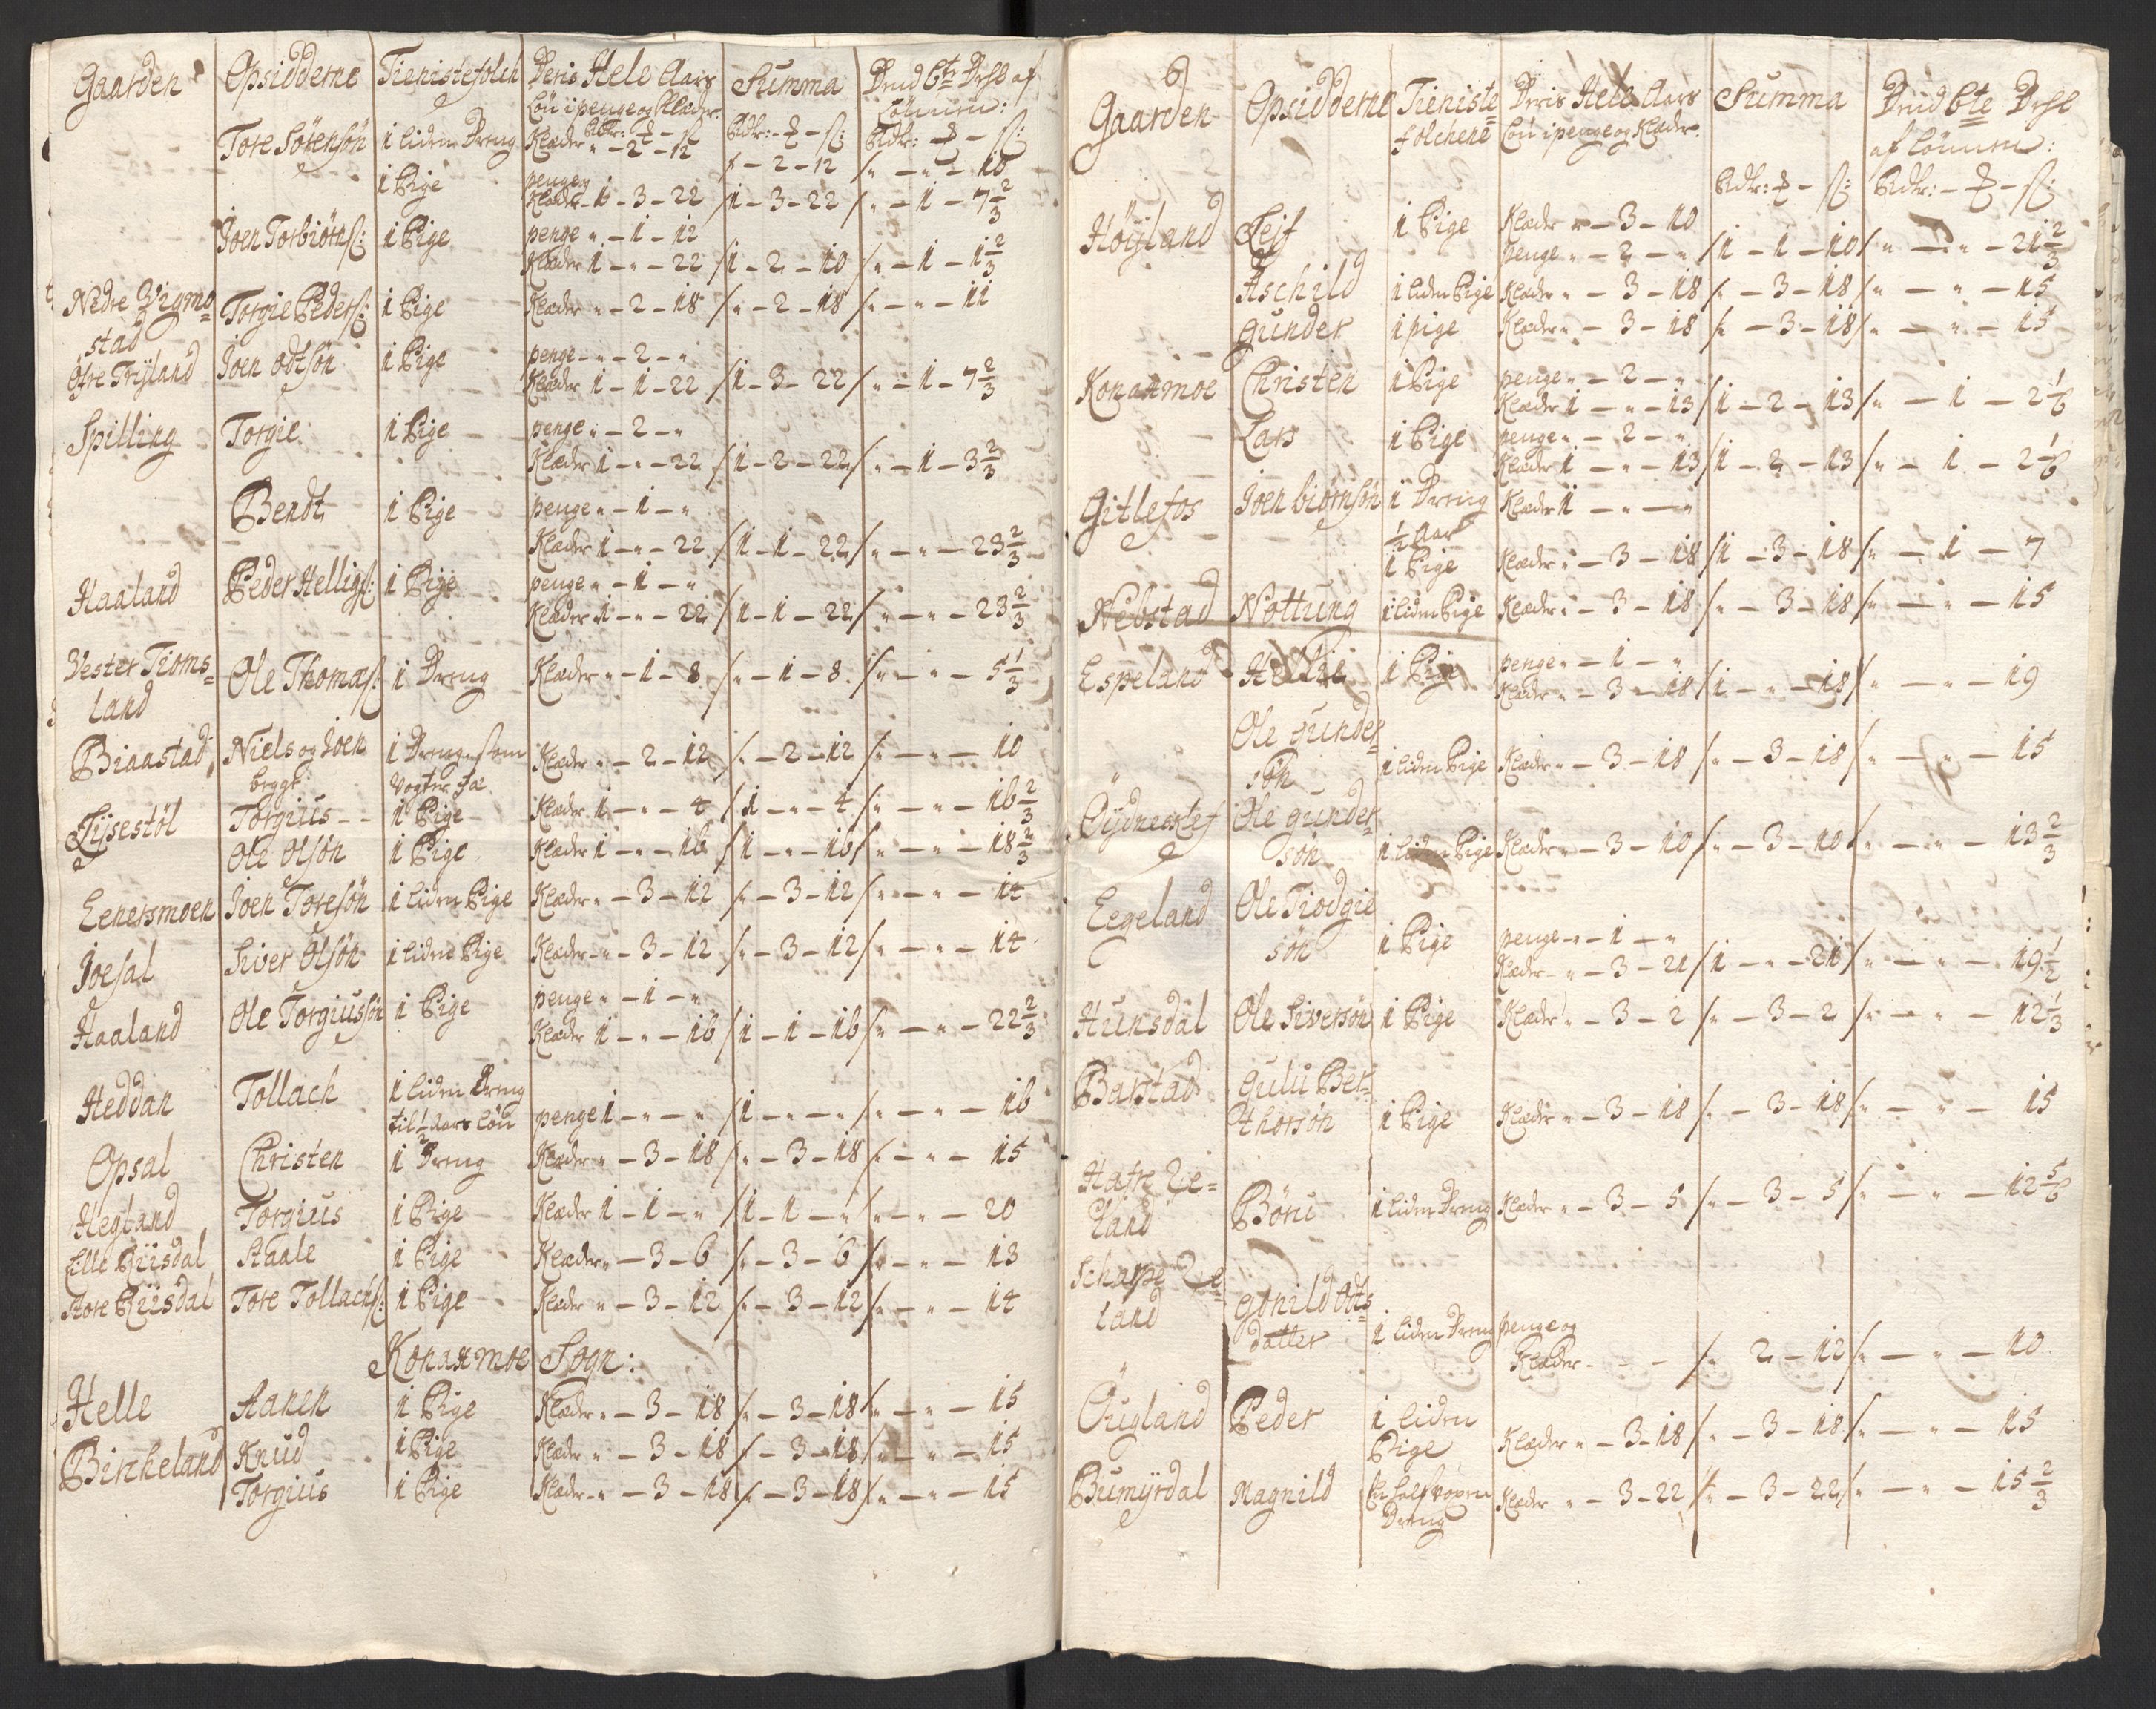 Gaarden Opsidderne Tienistefolch Deris Hele Aars Summa Dend 6te Deel af
Lön i penge og Klæder Lönnen:
Rdr: - ß Rdr: - ß: Rdr: - ß:
Tore Sörensön 1 liden Dreng Klæder „ - 2 - 12 „ - 2 - 12 „ - „ - 10
1 Pige penge „
Klæder - 1 - 3 - 22 1 - 3 - 22 „ - 1 - 7 2/3
Joen Torbiörnß: 1 Pige penge „ - 1 - 12
Klæder 1 - „ - 22 1 - 2 - 10 „ - 1 - 1 2/3
Nedre Vigmo=
stad Torgie Pederß: 1 Pige Klæder „ - 2 - 18 „ - 2 - 18 „ - „ - 11
Öfre Trÿland Joen odtsön 1 Pige penge - „ - 2 - „
Klæder 1 - 1 - 22 1 - 3 - 22 „ - 1 - 7 2/3
Spilling Torgie 1 Pige penge „ - 2 - „
Klæder 1 - „ - 22 1 - 2 - 22 „ - 1 - 3 2/3
Bendt 1 Pige penge „ - 1 - „
Klæder 1 - „ - 22 1 - 1 - 22 „ - „ - 23 2/3
Haaland Peder Helligß: 1 Pige penge „ - 1 - „
Klæder 1 - „ - 22 1 - 1 - 22 „ - „ - 23 2/3
Vester Tioms=
land Ole Thomaß: 1 Dreng Klæder „ - 1 - 8 „ - 1 - 8 „ - „ - 5 1/3
Biaastad Niels og Joen 1 Drenge som Klæder „ - 2 - 12 „ - 2 - 12 „ - „ - 10
begge vogter fæ
Lÿsestöl Torgius 1 Pige Klæder 1 - „ - 4 1 - „ - 4 „ - „ - 16 2/3
Ole Olsön 1 Pige Klæder 1 - „ - 16 1 - „ - 16 „ - „ - 18 2/3
Eenersmoen Joen Toresön 1 liden Pige Klæder „ - 3 - 12 „ - 3 - 12 „ - „ - 14
Joesal Siver Olsön 1 liden Pige Klæder „ - 3 - 12 „ - 3 - 12 „ - „ - 14
Haaland Ole Torgiussön 1 Pige penge „ - 1 - „
Klæder 1 - „ - 16 1 - 1 - 16 „ - „ - 22 2/3
Heddan Tollach 1 liden Dreng
til 1/2 Aars Lön penge 1 - „ - „ 1 - „ - „ „ - „ - 16
Opsal Christen 1 Dreng Klæder „ - 3 - 18 „ - 3 - 18 „ - „ - 15
Hegland Torgius 1 Pige Klæder 1 - 1 - „ 1 - 1 - „ „ - „ - 20
Lille Riisdal Staale 1 Pige Klæder „ - 3 - 6 „ - 3 - 6 „ - „ - 13
Store Riisdal Tore Tollachß: 1 Pige Klæder „ - 3 - 12 „ - 3 - 12 „ - „ - 14
Konasmoe Sogn:
Helle Aanen 1 Pige Klæder „ - 3 - 18 „ - 3 - 18 „ - „ - 15
Bircheland Knud 1 Pige Klæder „ - 3 - 18 „ - 3 - 18 „ - „ - 15
Torgius 1 Pige Klæder „ - 3 - 18 „ - 3 - 18 „ - „ - 15
Gaarden Opsidderne Tieniste= Deris Hele Aars Summa Dend 6te Deel
folchene Lön i penge og Klæder. af Lönnen:
Rdr: - ß: Rdr: - ß:
Höÿland Leif 1 Pige Klæder „ - 3 - 10
penge „ - 2 - „ 1 - 1 - 10 „ - „ - 21 2/3
Aschild 1 liden Pige Klæder „ - 3 - 18 „ - 3 - 18 „ - „ - 15
gunder 1 pige Klæder „ - 3 - 18 „ - 3 - 18 „ - „ - 15
Konasmoe Christen 1 Pige penge „ - 2 - „
Klæder 1 - „ - 13 1 - 2 - 13 „ - 1 - 2 1/6
Lars 1 Pige penge „ - 2 - „
Klæder 1 - „ - 13 1 - 2 - 13 „ - 1 - 2 1/6
Gitlefos Joen biörnsön 1 Dreng Klæder 1 - „ - „
1/2 Aar
1 Pige Klæder „ - 3 - 18 1 - 3 - 18 „ - 1 - 7
Nebstad Nottung 1 liden Pige Klæder „ - 3 - 18 „ - 3 - 18 „ - „ - 15
Espeland 1 Pige penge „ - 1 - „
Klæder „ - 3 - 18 1 - „ - 18 „ - „ - 19
Ole gunder=
„ sön 1 liden Pige Klæder „ - 3 - 18 „ - 3 - 18 „ - „ - 15
Ole gunder=
sön 1 liden Pige Klæder „ - 3 - 10 „ - 3 - 10 „ - „ - 13 2/3
Eegeland Ole Tiodgie
sön 1 Pige penge „ - 1 - „
Klæder „ - 3 - 21 1 - „ - 21 „ - „ - 19 1/2
Hunsdal Ole Siversön 1 Pige Klæder „ - 3 - 2 „ - 3 - 2 „ - „ - 12 1/3
Barstad Gulu Ber=
thorsön 1 Pige Klæder „ - 3 - 18 „ - 3 - 18 „ - „ - 15
land Böru 1 liden Dreng Klæder „ - 3 - 5 „ - 3 - 5 „ - „ - 12 5/6
land Gonild Ots
datter 1 liden Dreng penge og
Klæder - - - „ 2 - 12 „ - „ - 10
Öugland Peder 1 liden
Pige Klæder „ - 3 - 18 „ - 3 - 18 „ - „ - 15
Bumÿrdal Magnild En half voxen
Dreng Klæder „ - 3 - 22 „ - 3 - 22 „ - „ - 15 2/3